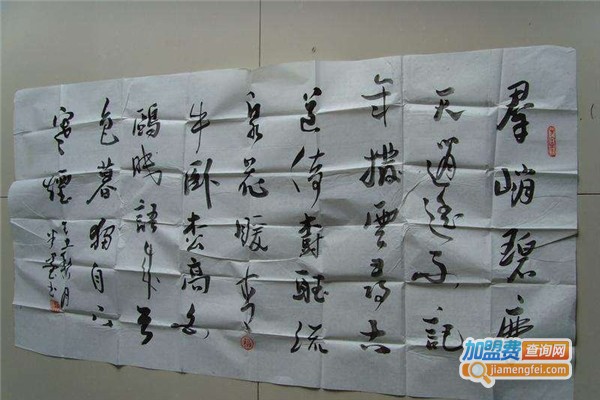 羣峭碧摩
天逍遥不記
年撥雲尋古
道倚樹聽流
泉花暖青
牛卧松高白
鶴眠語来江
色暮獨自下
寒煙
加盟费查询网
jiamengfei.com